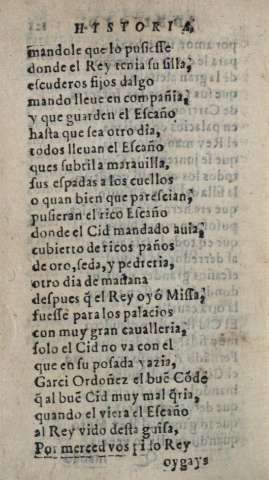 HYSTORIA,
mandole que lo pusiesse
donde el Rey tenia su silla,
escuderos fijos dalgo
mando lleue en compañia,
y que guarden el Escaño
hasta que sea otro dia,
todos lleuan el Escaño
ques subtil a marauilla,
sus espadas a los cuellos
o quan bien que pareseian,
pusieran el rico Escaño
donde el Cid mandado auia,
cubierto de ricos paños
de oro, seda, y pedreria,
otro dia de mañana
despues q̃ el Rey oyó Missa,
fuesse para los palacios
con muy gran caualleria,
solo el Cid no va con el
que en su posada yazia,
Garci Ordoñez el buẽ Cõde
q̃ al buẽ Cid muy mal q̃ria,
quando el viera el Escaño
al Rey vido desta guisa,
Por merced vos lo Rey
oygays